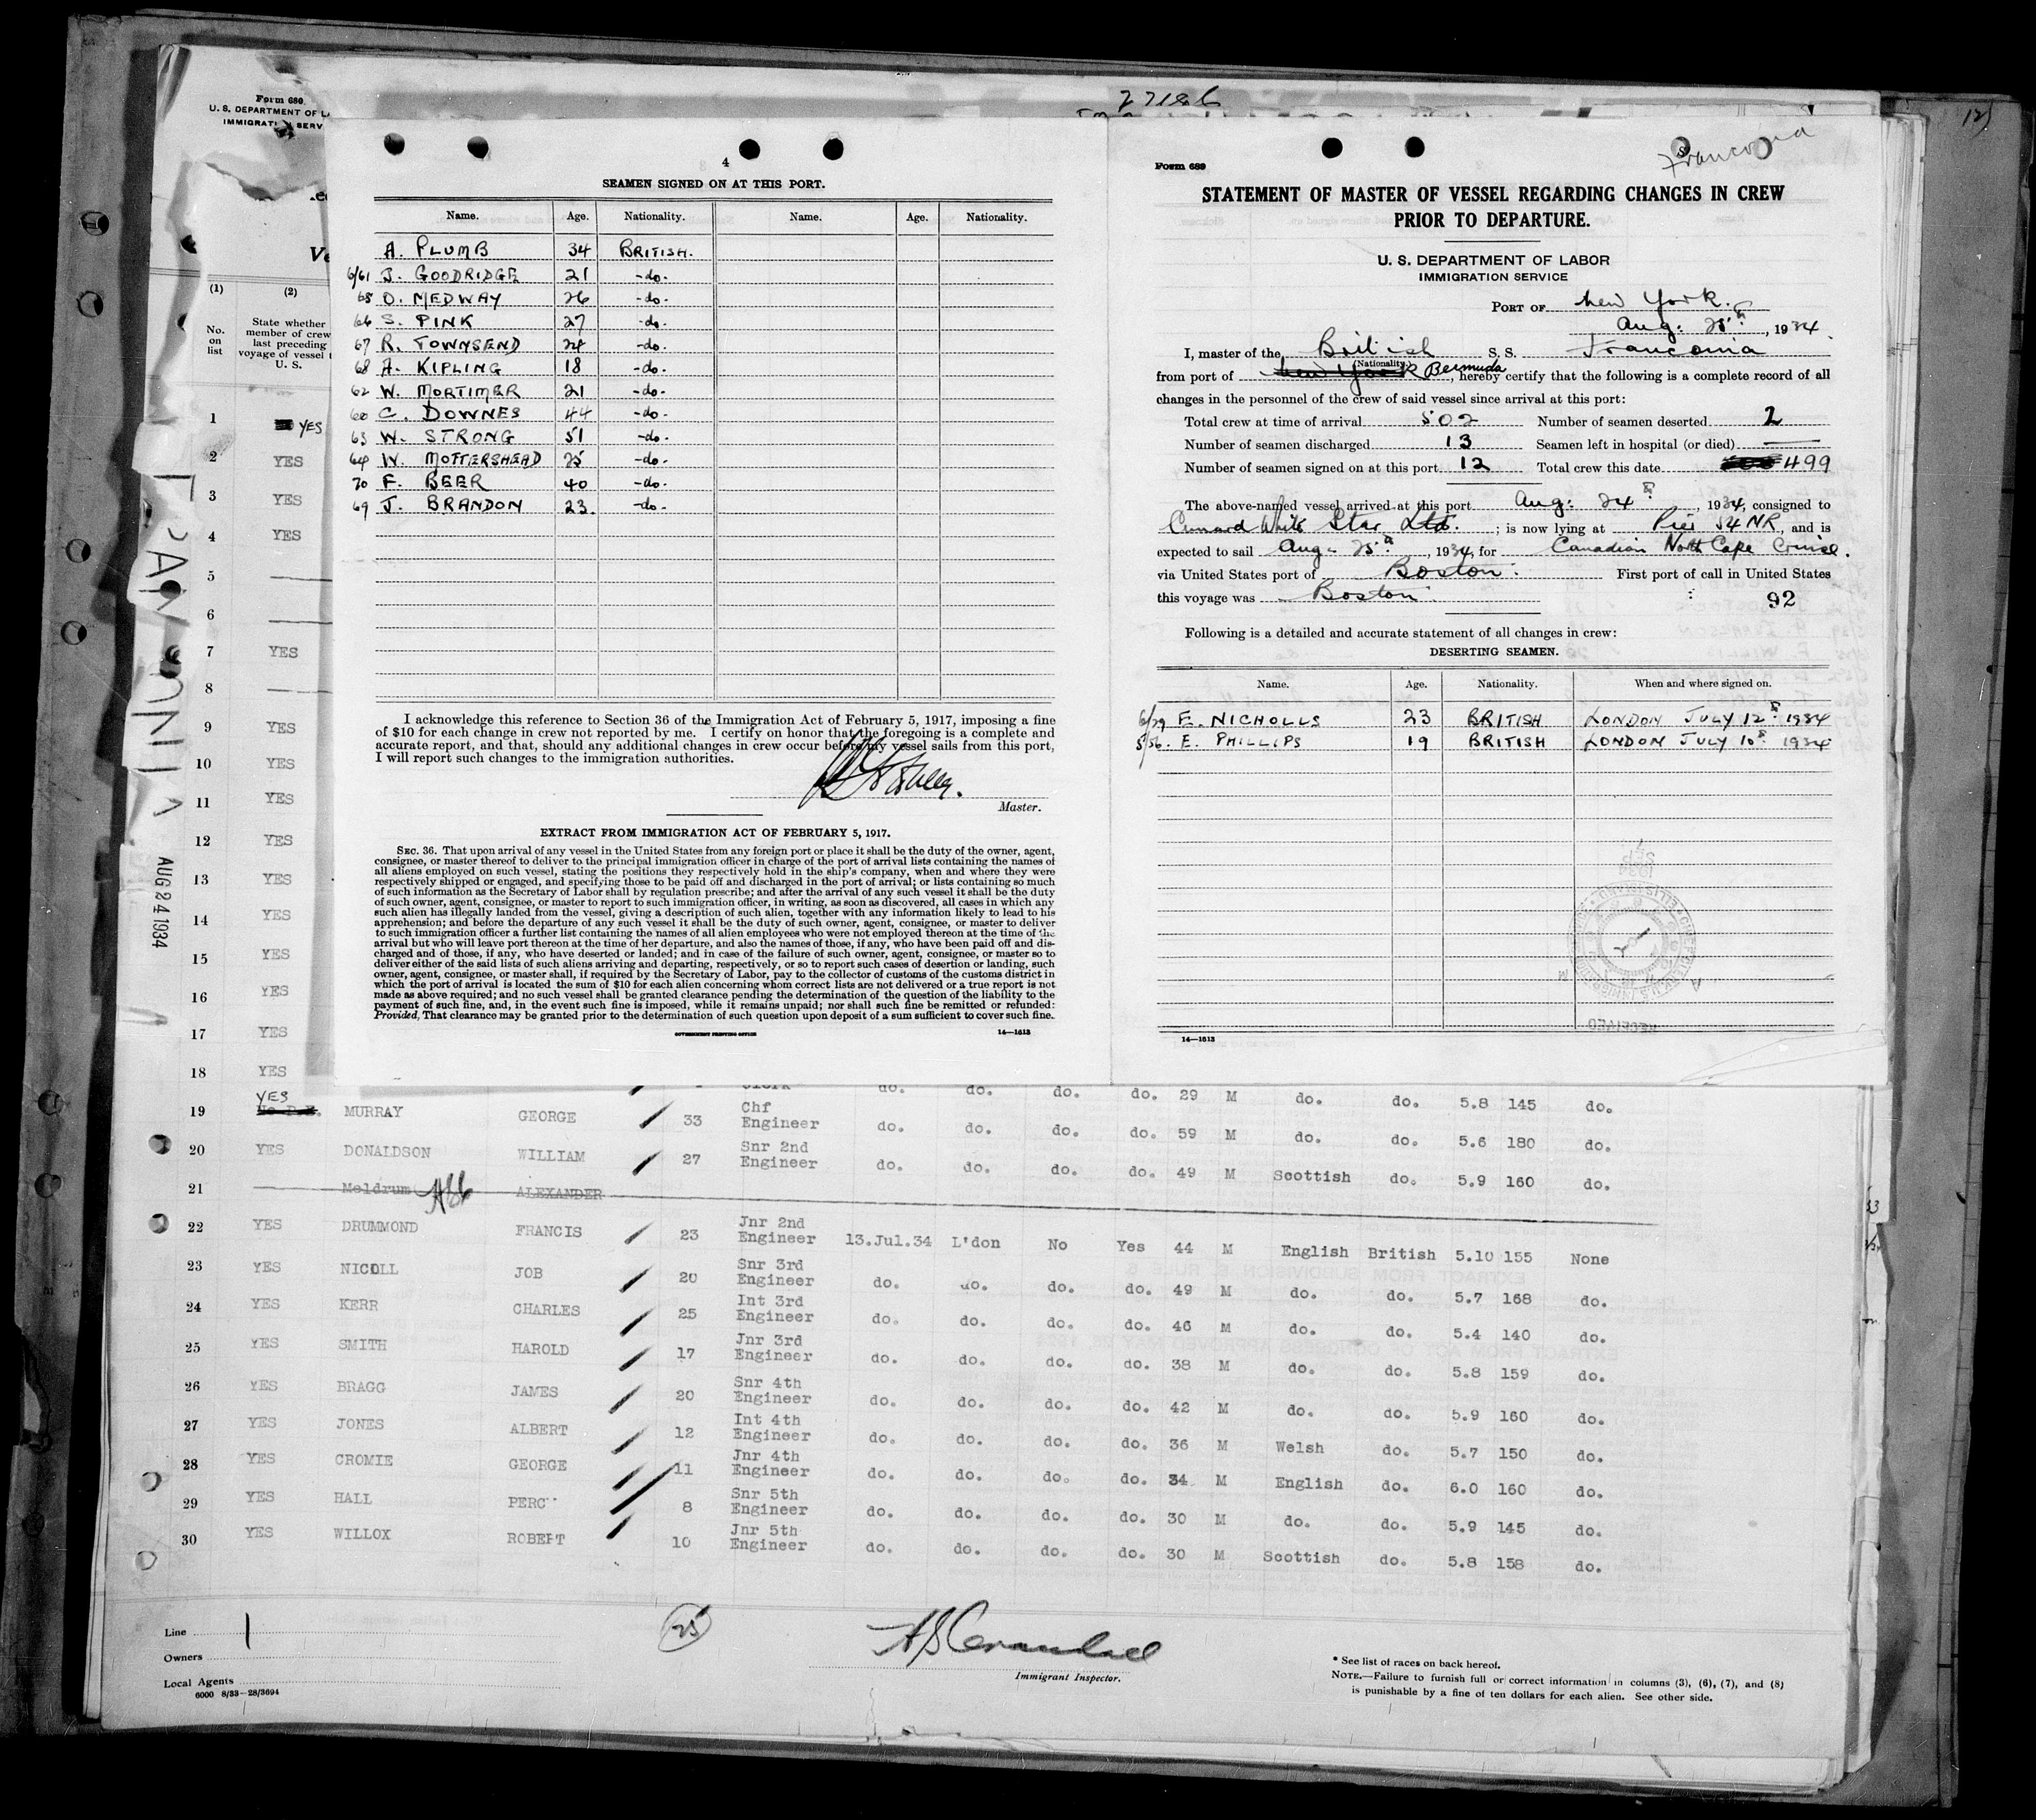 27186
12)
Form 680
U. S. DEPARTMENT OF LA
IMMIGRATI SERV
Ve
(1) (2)
No. on list
State whether
member of crew
last preceding
voyage of vessel t
U. S.
1 YES
2 YES
3 YES
4 YES
5
6
7 YES
8
9 YES
10 YES
11 YES
12 YES
13 YES
14 YES
15 YES
16 YES
17 YES
18 YES
FRANCONIA
AUG 24 1934
4
SEAMEN SIGNED ON AT THIS PORT.
Name. Age. Nationality. Name. Age. Nationality.
A. PLUMB 34 BRITISH.
6/61 J. GOODRIDGE 21 -do-
65 O. MEDWAY 26 -do-
66 S. PINK 27 -do-
67 R. TOWNSEND 24 -do-
68 A. KIPLING 18 -do-
62 W. MORTIMER 21 -do-
60 C. DOWNES 44 -do-
63 W. STRONG 51 -do-
64 W. MOTTERSHEAD 25 -do-
70 F. BEER 40 -do-
69 J. BRANDON 23. -do-
I acknowledge this reference to Section 36 of the Immigration Act of February 5, 1917, imposing a fine
of $10 for each change in crew not reported by me. I certify on honor that the foregoing is a complete and
accurate report, and that, should any additional changes in crew occur before my vessel sails from this port,
I will report such changes to the immigration authorities.
Master.
EXTRACT FROM IMMIGRATION ACT OF FEBRUARY 5, 1917.
SEC. 36. That upon arrival of any vessel in the United States from any foreign port or place it shall be the duty of the owner, agent,
consignee, or master thereof to deliver to the principal immigration officer in charge of the port of arrival lists containing the names of
all aliens employed on such vessel, stating the positions they respectively hold in the ship's company, when and where they were
respectively shipped or engaged, and specifying those to be paid off and discharged in the port of arrival; or lists containing so much
of such information as the Secretary of Labor shall by regulation prescribe; and after the arrival of any such vessel it shall be the duty
of such owner, agent, consignee, or master to report to such immigration officer, in writing, as soon as discovered, all cases in which any
such alien has illegally landed from the vessel, giving a description of such alien, together with any information likely to lead to his
apprehension; and before the departure of any such vessel it shall be the duty of such owner, agent, consignee, or master to deliver
to such immigration officer a further list containing the names of all alien employees who were not employed thereon at the time of the
arrival but who will leave port thereon at the time of her departure, and also the names of those, if any, who have been paid off and dis-
charged and of those, if any, who have deserted or landed; and in case of the failure of such owner, agent, consignee, or master so to
deliver either of the said lists of such aliens arriving and departing, respectively, or so to report such cases of desertion or landing, such
owner, agent, consignee, or master shall, if required by the Secretary of Labor, pay to the collector of customs of the customs district in
which the port of arrival is located the sum of $10 for each alien concerning whom correct lists are not delivered or a true report is not
made as above required; and no such vessel shall be granted clearance pending the determination of the question of the liability to the
payment of such fine, and, in the event such fine is imposed, while it remains unpaid; nor shall such fine be remitted or refunded:
Provided, That clearance may be granted prior to the determination of such question upon deposit of a sum sufficient to cover such fine.
GOVERNMENT PRINTING OFFICE 14—1613
Franconia
Form 689
STATEMENT OF MASTER OF VESSEL REGARDING CHANGES IN CREW
PRIOR TO DEPARTURE.
U. S. DEPARTMENT OF LABOR
IMMIGRATION SERVICE
PORT OF New York.
Aug: 25th, 1934.
I, master of the British S. S. Franconia
(Nationality)
from port of New York Bermuda, hereby certify that the following is a complete record of all
changes in the personnel of the crew of said vessel since arrival at this port:
Total crew at time of arrival 502 Number of seamen deserted 2
Number of seamen discharged 13 Seamen left in hospital (or died) —
Number of seamen signed on at this port 12 Total crew this date 499
The above-named vessel arrived at this port Aug: 24th, 1934, consigned to
Cunard White Star Ltd. ; is now lying at Pier 54 NR, and is
expected to sail Aug- 25th, 1934, for Canadian North Cape Cruise.
via United States port of Boston. First port of call in United States
this voyage was Boston.
92
Following is a detailed and accurate statement of all changes in crew:
DESERTING SEAMEN.
Name. Age. Nationality. When and where signed on.
6/29 E. NICHOLLS 23 BRITISH LONDON JULY 12th 1934
5/56. E. PHILLIPS 19 BRITISH LONDON JULY 10th 1934
RECEIVED
14—1613
Clerk do. do. do. do. 29 M do. do. 5.8 145 do.
19 YES MURRAY GEORGE 33 Chf Engineer do. do. do. do. 59 M do. do. 5.6 180 do.
20 YES DONALDSON WILLIAM 27 Snr 2nd Engineer do. do. do. do. 49 M Scottish do. 5.9 160 do.
21 Meldrum ALEXANDER
22 YES DRUMMOND FRANCIS 23 Jnr 2nd Engineer 13.Jul.34 L'don No Yes 44 M English British 5.10 155 None
23 YES NICOLL JOB 20 Snr 3rd Engineer do. do. do. do. 49 M do. do. 5.7 168 do.
24 YES KERR CHARLES 25 Int 3rd Engineer do. do. do. do. 46 M do. do. 5.4 140 do.
25 YES SMITH HAROLD 17 Jnr 3rd Engineer do. do. do. do. 38 M do. do. 5.8 159 do.
26 YES BRAGG JAMES 20 Snr 4th Engineer do. do. do. do. 42 M do. do. 5.9 160 do.
27 YES JONES ALBERT 12 Int 4th Engineer do. do. do. do. 36 M Welsh do. 5.7 150 do.
28 YES CROMIE GEORGE 11 Jnr 4th Engineer do. do. do. do. 34 M English do. 6.0 160 do.
29 YES HALL PERCY 8 Snr 5th Engineer do. do. do. do. 30 M do. do. 5.9 145 do.
30 YES WILLOX ROBERT 10 Jnr 5th Engineer do. do. do. do. 30 M Scottish do. 5.8 158 do.
Line 1
Owners
Local Agents
6000 8/33—28/3694
25
Immigrant Inspector.
* See list of races on back hereof.
NOTE.—Failure to furnish full or correct information in columns (3), (6), (7), and (8)
is punishable by a fine of ten dollars for each alien. See other side.